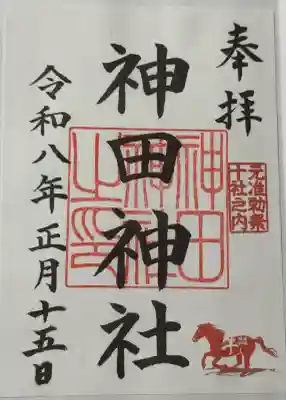 奉拝
元准勅祭
十社之内
神田神社
神田神社之印
令和八年正月十五日